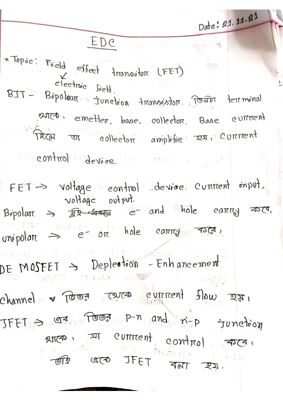 Date: 21.11.21
EDC
* Topic: Field effect transitor (FET)
electric field.
BJT - Bipolar Junction transistor. তিনটা terminal
থাকে. emetter, base, collector. Base current
দিলে তা collector amplifie হয়. Current
control device.
FET → voltage control device. Current input,
voltage output.
Bipolar → e⁻ and hole carry করে.
unipolar → e⁻ or hole carry করে.
DE MOSFET → Deplection - Enhancement
channel এর ভিতর থেকে current flow হয়।
JFET → এর ভিতর p-n and n-p junction
থাকে, যা current control করে,
তাই একে JFET বলা হয়.